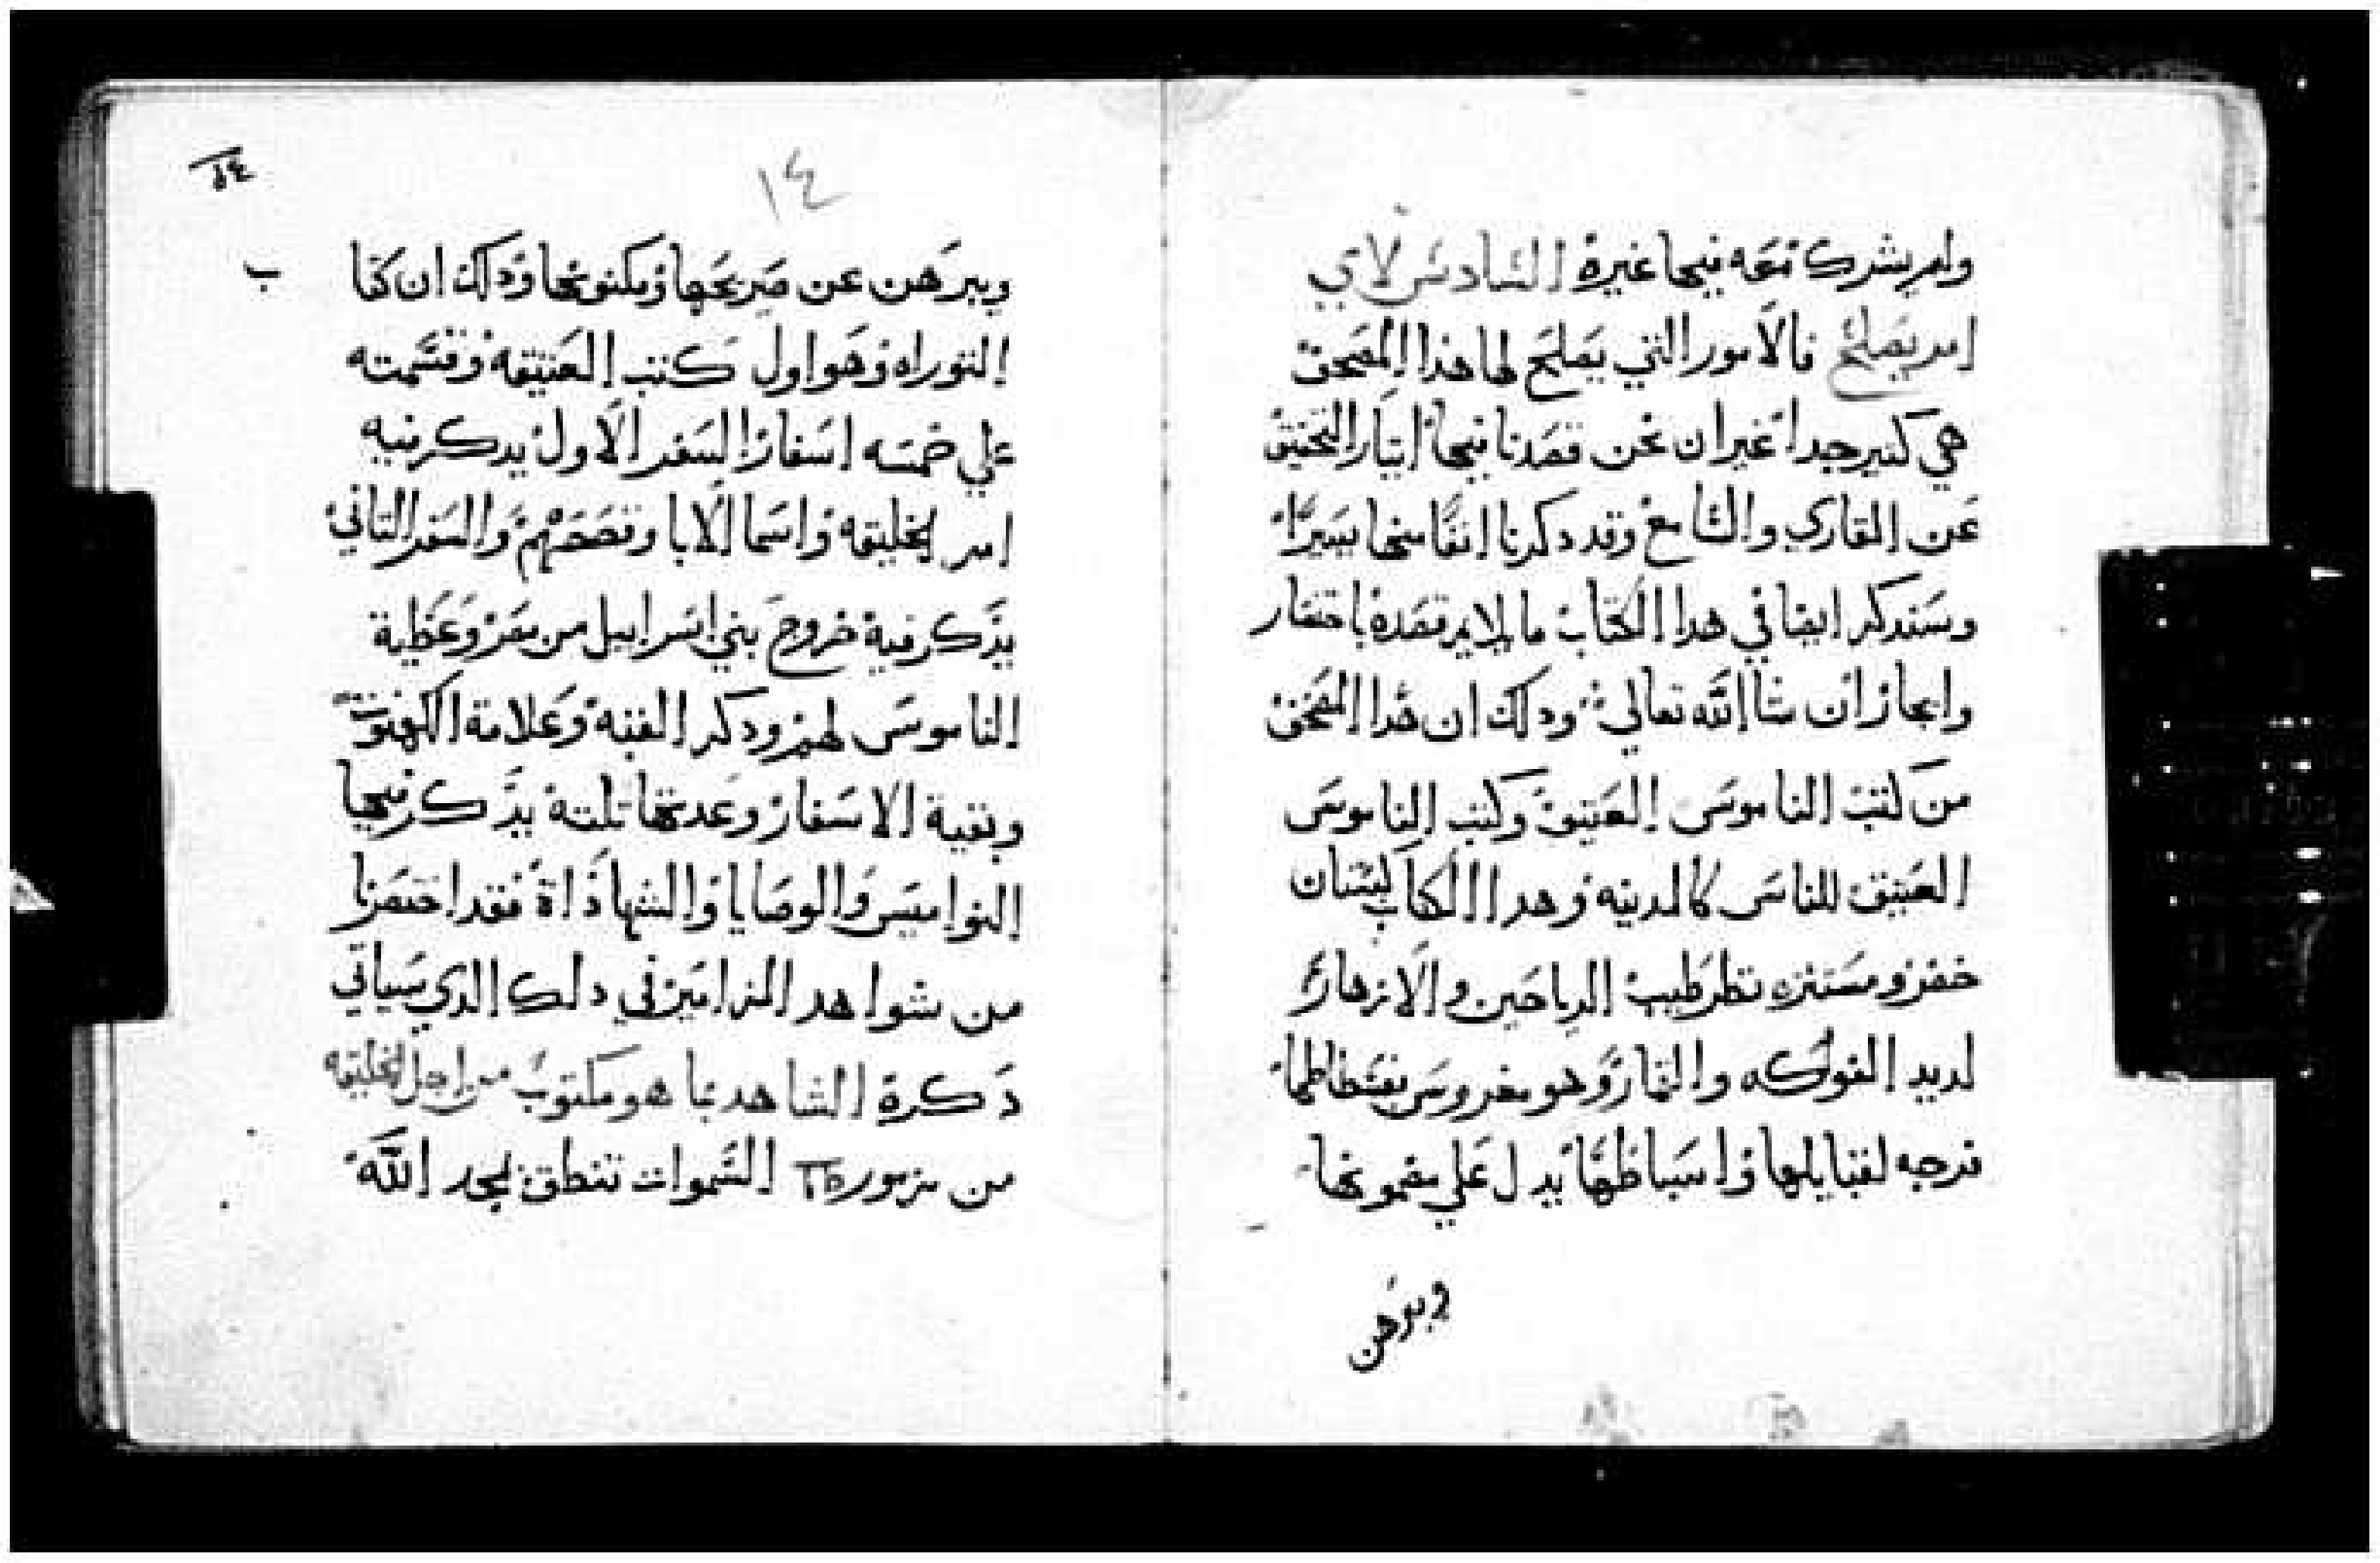 ولم يشرك معه فيها غيره السادس لاي
امر يصلح فالامور التي يصلح لها هذا المصحف
هي كثير جدا غير ان نحن قصدنا فيها ايثار التخفيف
عن القاري والسامع وقد دكرنا انفا منها يسيرا
وسندكر ايضا في هدا الكتاب ما لابد قصده باختصار
وايجاز ان شا الله تعالي ودلك ان هدا المصحف
من كتب الناموس العتيق وكتب الناموس
العتيق للناس كالمدينه وهدا الكتاب لبستان
خضر ومستنزه نظر طيب الرياحين والازهار
لديد الفوكه والثمار وهو مغروس
فرجه لقبايلها واسباطها يدل علي مضمونها
ويبرهن
١٤
ويبرهن عن صريحها ومكنونها ودلك ان كتا
ب
التوراه وهو اول كتب العتيقه وقسمته
علي خمسه اسفار السفر الاول يدكر فيه
امر الخليقه واسما الابا وقصصهم والسفر التاني
يدكر فيه خروج بني اسراييل من مصر وعطية
الناموس لهم ودكر القبه وعلامة الكهنوت
وبقية الاسفار وعدتها تلته يدكر فيها
النواميس والوصايا والشهاداة فقد اختصرنا
من شواهد المزامير في دلك الدي سياتي
دكره الشاهد بما هو مكتوب من اجل الخليقه
من مزمور السموات تنطق بمجد الله